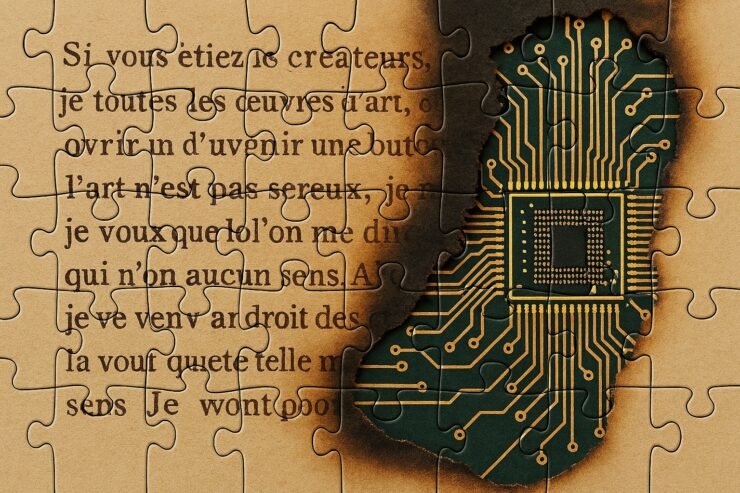 Si vous ėtiez le créateurs,
je toutes les œuvres d'art, o
ovrir un d'uvgnir une buto
l'art n'est pas sereux, je
je voux que lol'on me di
qui n'on aucun sens. A
je ve venv ar droit des
la vout quiete telle
sens Je wont poor